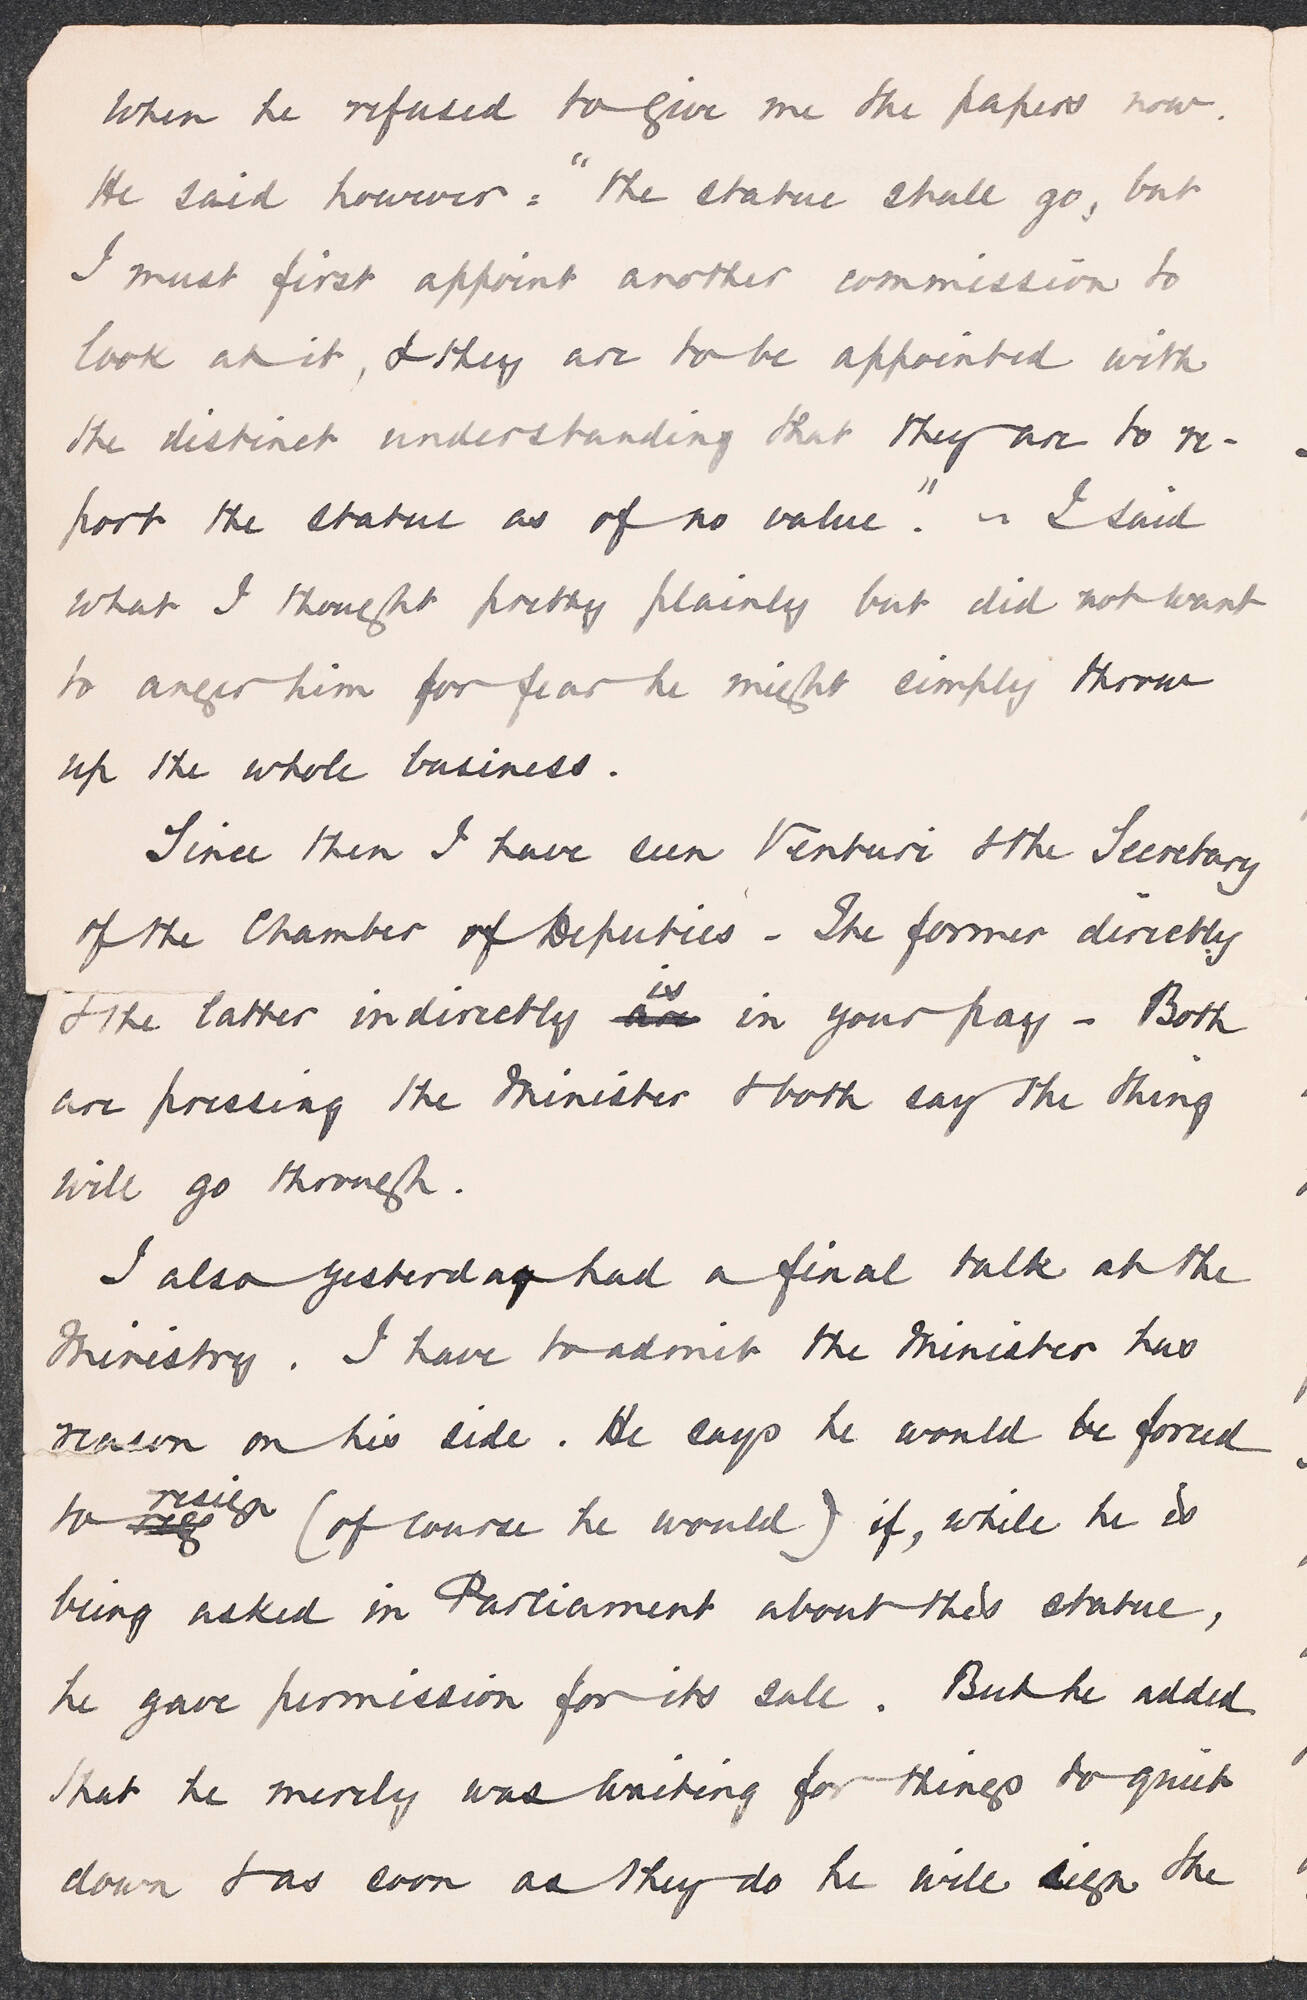 when he refused to give me the papers now.
He said however: "the statue shall go, but
I must first appoint another commission to
look at it, & they are to be appointed with
the distinct understanding that they are to re-
port the statue as of no value." – I said
what I thought pretty plainly but did not want
to anger him for fear he might simply throw
up the whole business.
Since then I have seen Venturi & the Secretary
of the Chamber of Deputies – The former directly
& the latter indirectly are is in your pay – Both
are pressing the Minister & both say the thing
will go through.
I also yesterday had a final talk at the
Ministry. I have to admit the Minister has
reason on his side. He says he would be forced
to resign (of course he would) if, while he is
being asked in Parliament about this statue,
he gave permission for its sale. But he added
that he merely was waiting for things to quiet
down & as soon as they do he will sign the